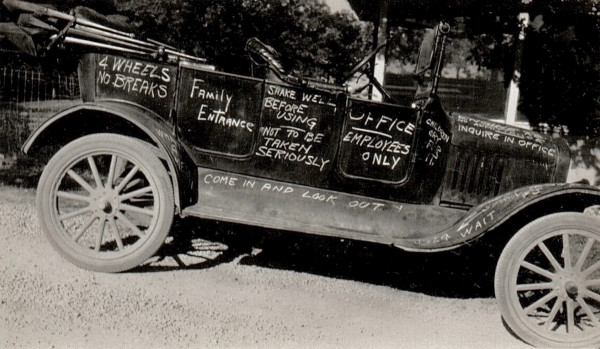 4 WHEELS
NO BREAKS
Family
Entrance
SHAKE WELL
BEFORE
USING
NOT TO BE
TAKEN
SERIOUSLY
OFFICE
EMPLOYEES
ONLY
INQUIRE IN OFFICE
COME IN AND LOOK OUT
WAIT